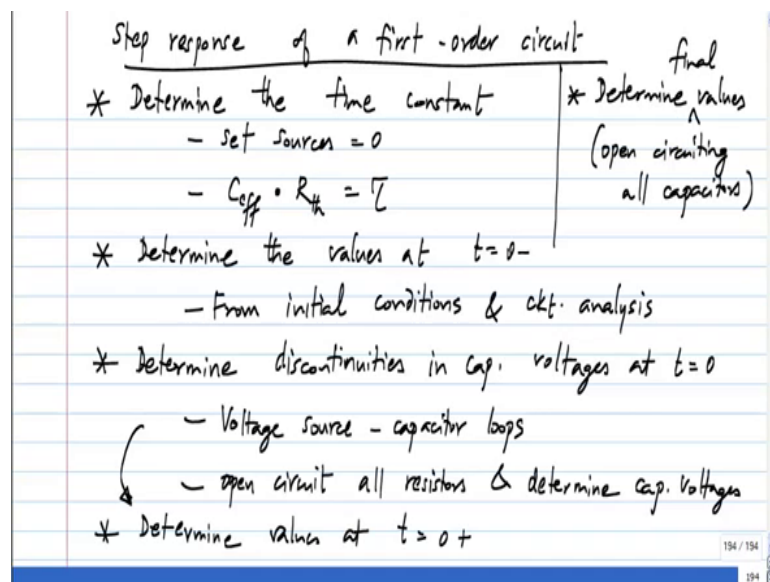 Step response of a first-order circuit
* Determine the time constant
- set sources = 0
- Ceff · Rth = τ
* Determine the values at t=0-
- From initial conditions & ckt. analysis
* Determine discontinuities in cap. voltages at t=0
- Voltage source - capacitor loops
- open circuit all resistors & determine cap. voltages
* Determine values at t=0+
* Determine final values
(open circuiting
all capacitors)
194 / 194
194